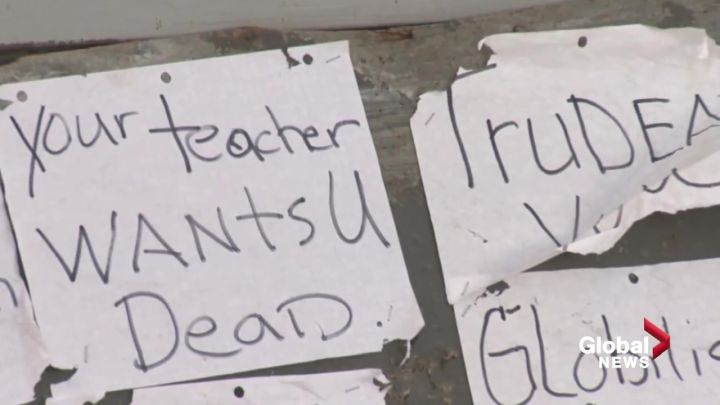 Your teacher
WANts U
DeaD
TruDEA
Global
NEWS